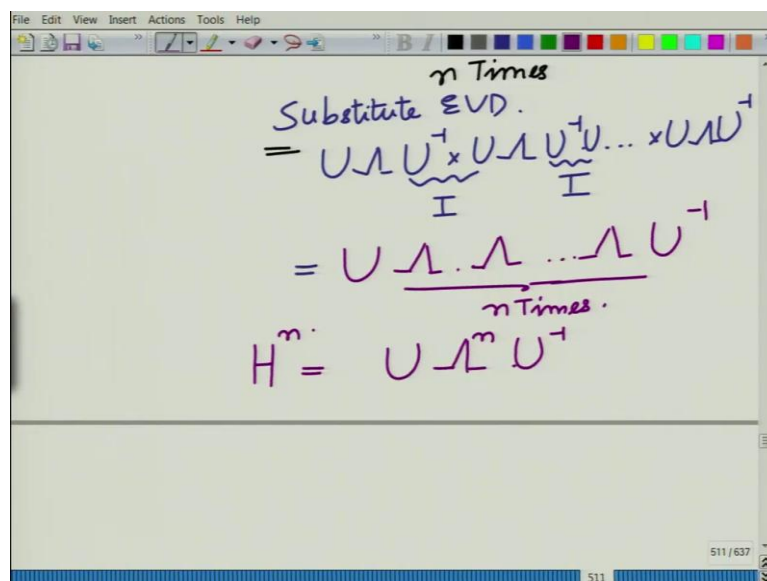 File Edit View Insert Actions Tools Help
n Times
Substitute EVD.
= UΛU⁻¹ × UΛU⁻¹U... × UΛU⁻¹
I I
= U Λ . Λ ... Λ U⁻¹
n Times.
Hⁿ = U Λⁿ U⁻¹
511 / 637
511